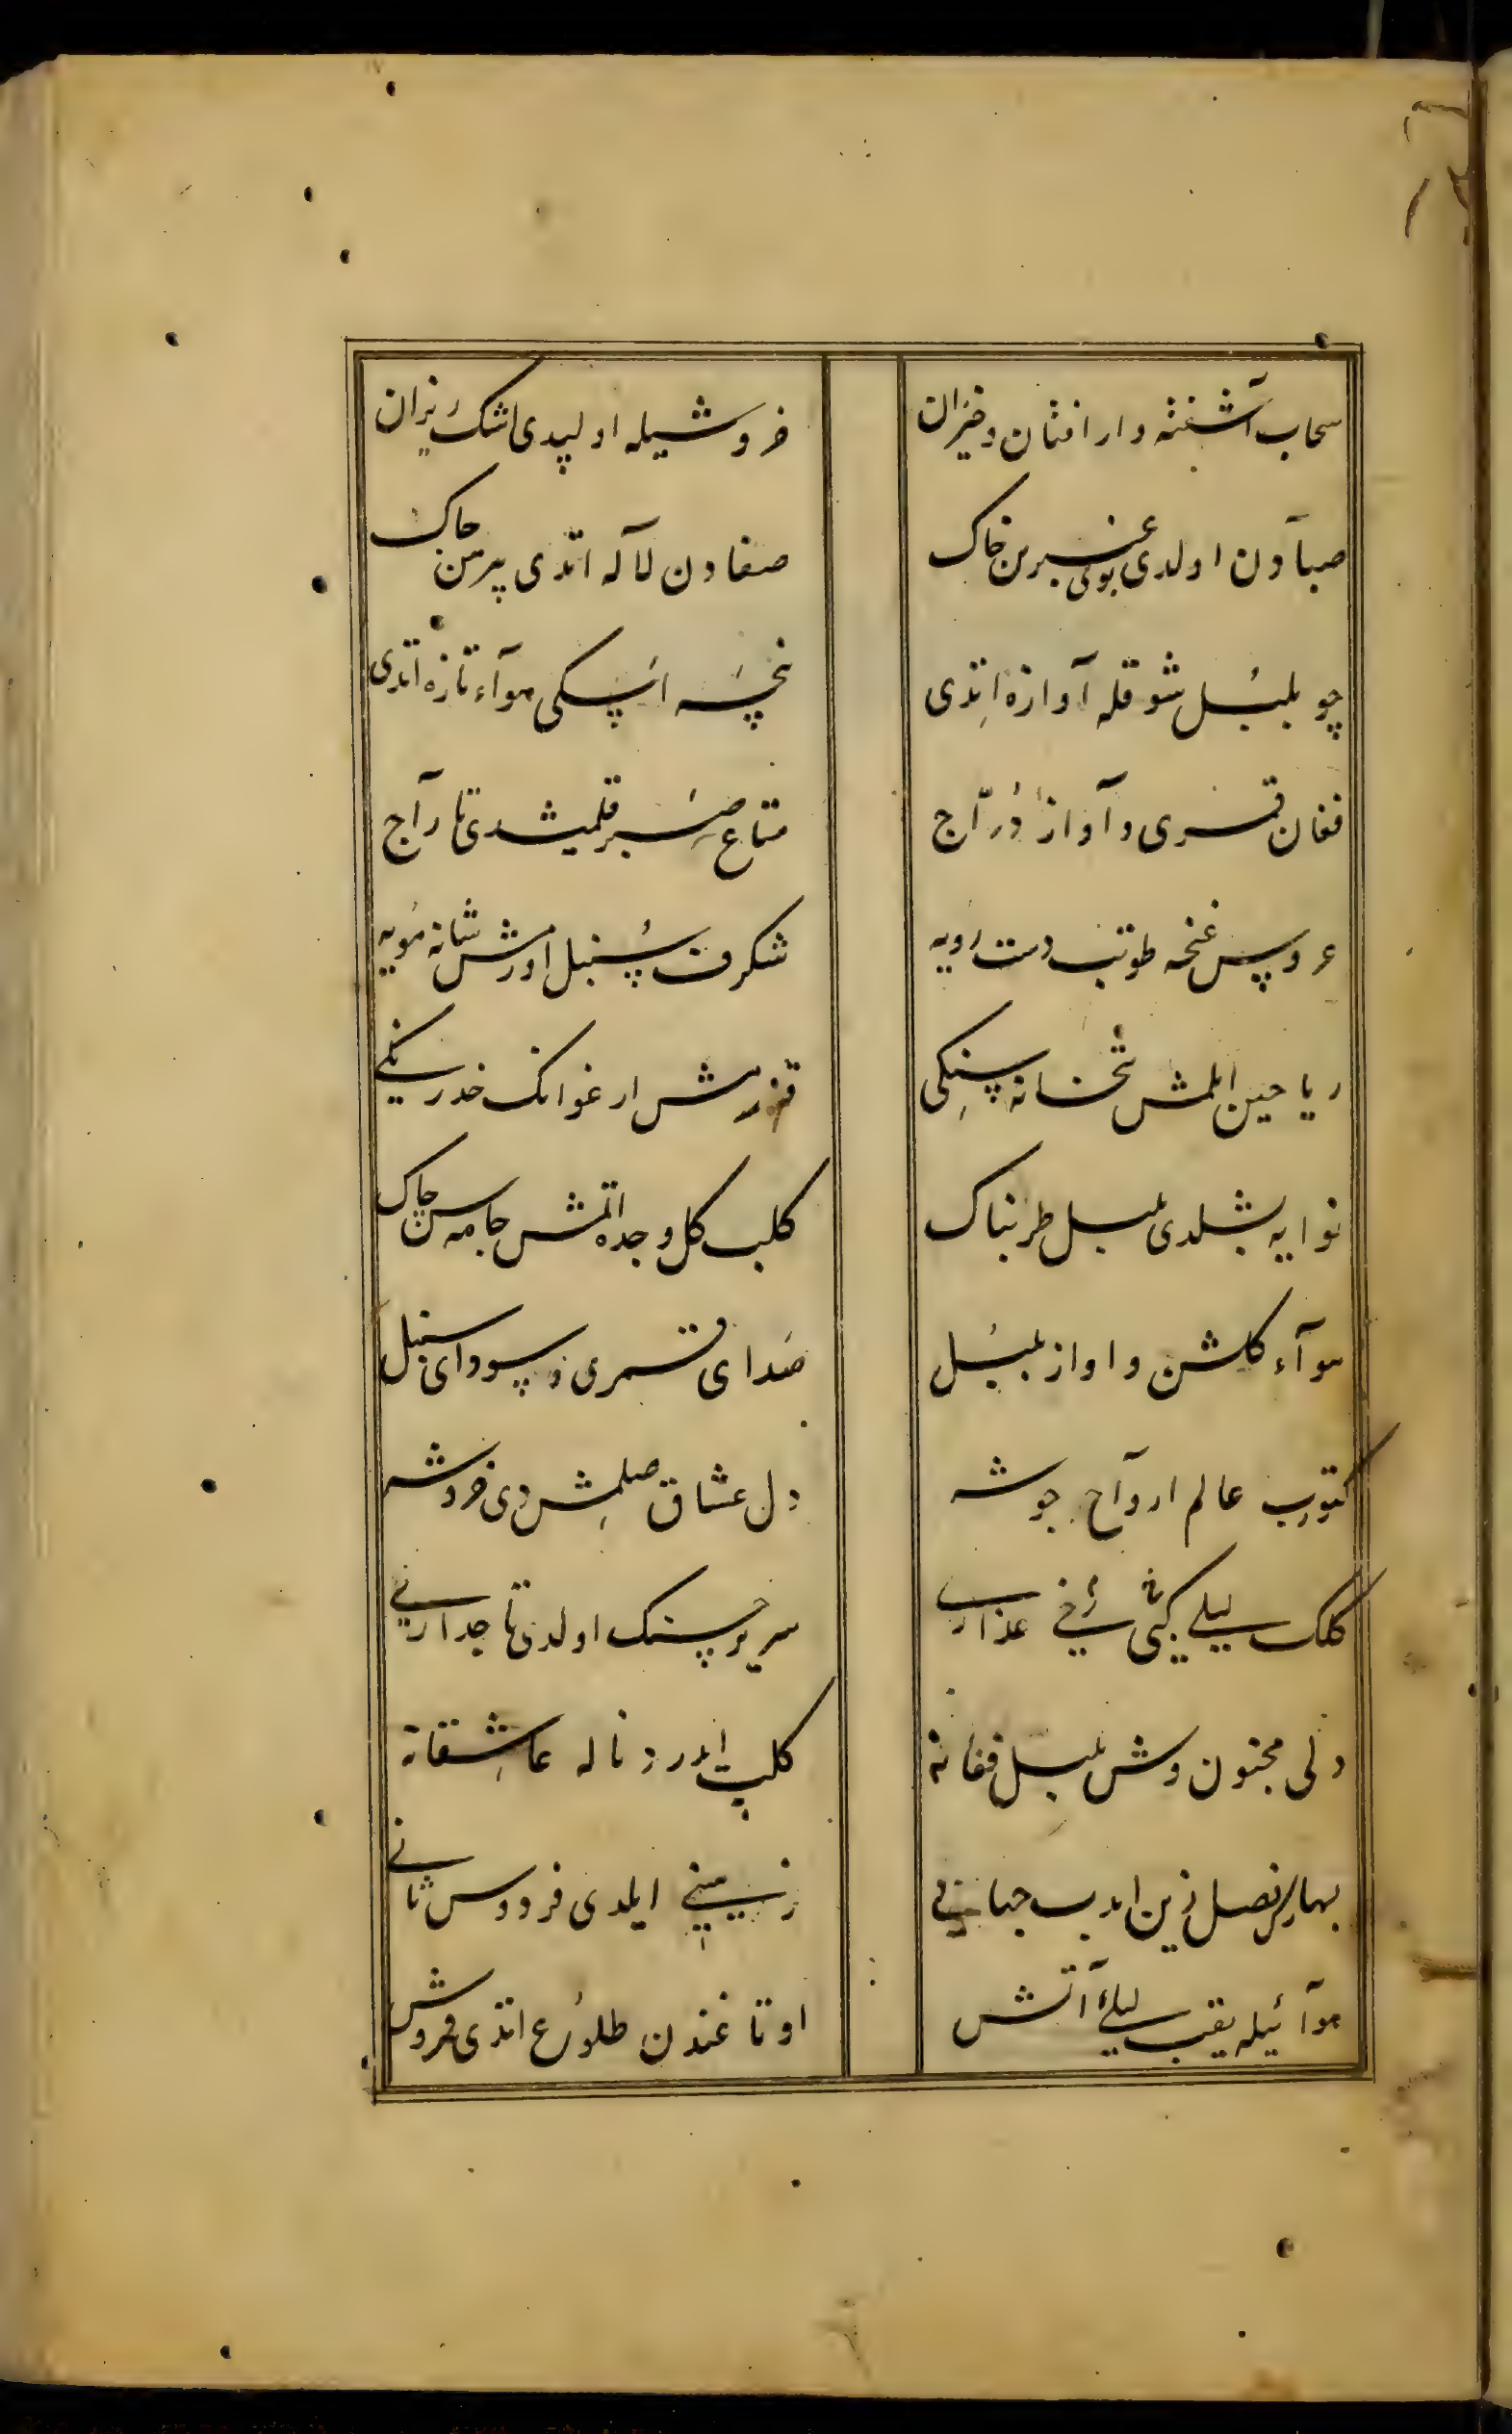 سحاب آشفته وار افتان و خیزان
خروشیله اولیدی اشک ریزان
صبادن اولدی بوی عنبرین خاک
صفادن لاله اتدی پیرهن چاک
چو بلبل شوقله آوازه اتدی
نچه اسکی هوآء تازه اتدی
فغان قمری و آواز دُرّاج
متاع صبر قلمشدی تاراج
عروس غنچه طوتب دست رویه
شکرف سُنبل اورمش شانه مُویه
ریاحین ایلمش
قزرمش ارغوانک خد رنکی
نوایه بشلدی بلبل طربناک
کلب کل وجده اتمش جامه سن چاک
هوآء کلشن و اواز بلبُل
صَدای قمری و سودای سنبل
کتورب عالم ارواح جوشه
دل عشاق صلمشدی خروشه
کلک لیلی کبی رُخ عذاری
سریر چمنک اولدی تاجداری
دلی مجنون وش بلبل فغانه
کلب ایدردی ناله عاشقانه
بهار فصل زین ایدب جهانی
زمینی ایلدی فردوس ثانی
هوآئیله یقب لیلی آتش
اوتاغندن طلوُع اتدی